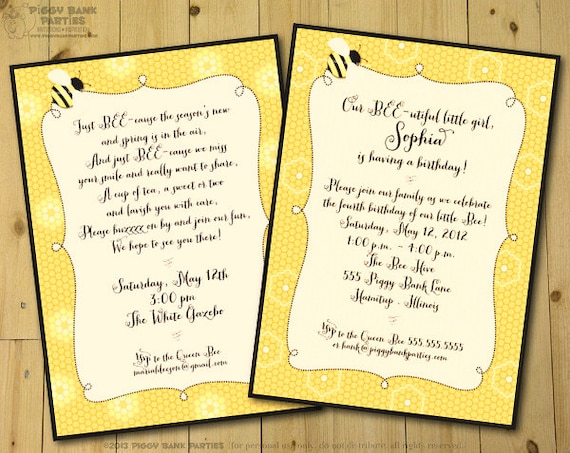 Piggy Bank
Parties
INVITATIONS + PRINTABLES
WWW.PIGGYBANKPARTIES.COM
Just BEE-cause the season's new
and spring is in the air,
And just BEE-cause we miss
your smile and really want to share,
A cup of tea, a sweet or two
and lavish you with care,
Please buzzzzz on by and join our fun,
We hope to see you there!
Saturday, May 12th
3:00 pm
The White Gazebo
to the Queen Bee
Our BEE-utiful little girl,
Sophia
is having a birthday!
Please join our family as we celebrate
the fourth birthday of our little Bee!
Saturday, May 12, 2012
1:00 p.m. - 4:00 p.m.
The Bee Hive
555 Piggy Bank Lane
Hamitup, Illinois
to the Queen Bee 555.555.5555
or hank@piggybankparties.com
©2013 PIGGY BANK PARTIES {for personal use only. do not distribute. all rights reserved.}